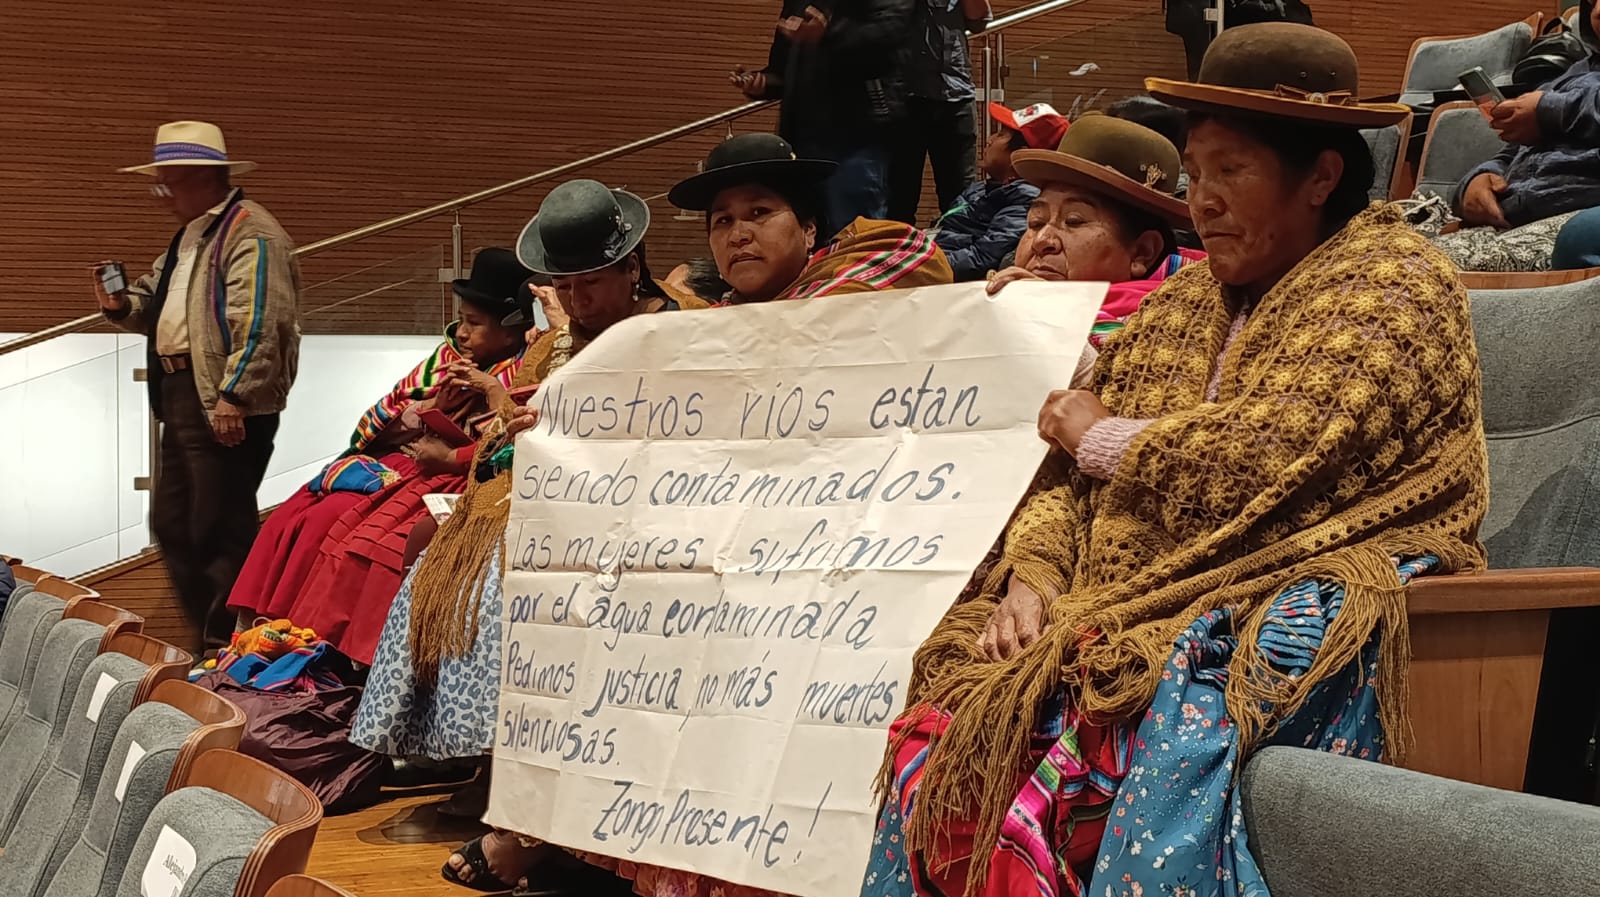 Nuestros rios estan
siendo contaminados.
Las mujeres sufrimos
por el agua contaminada
Pedimos justicia, no más muertes
silenciosas.
Zongo Presente!